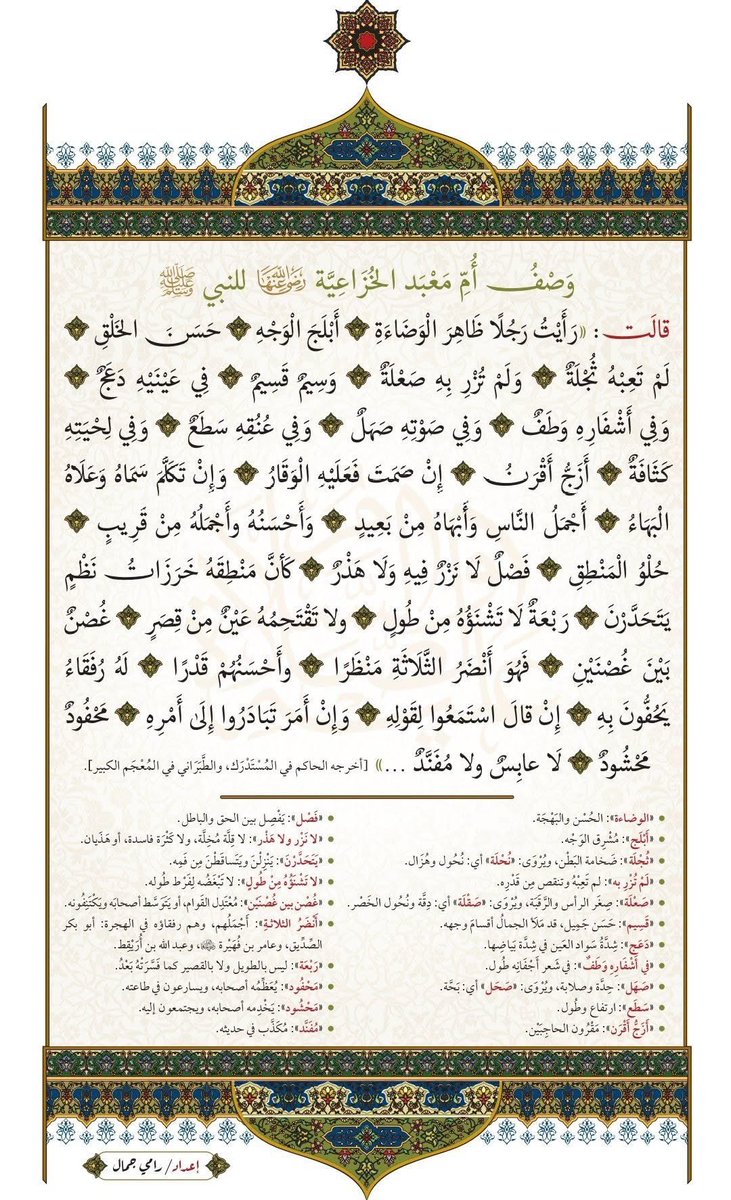 وَصْفُ أُمِّ مَعْبَد الخُزَاعِيَّة رَضِيَ اللَّهُ عَنْهَا للنبي ﷺ
قالَت: «رَأَيْتُ رَجُلًا ظَاهِرَ الْوَضَاءَةِ ۞ أَبْلَجَ الْوَجْهِ ۞ حَسَنَ الخَلْقِ ۞
لَمْ تَعِبْهُ ثُجْلَةٌ ۞ وَلَمْ تُزْرِ بِهِ صَعْلَةٌ ۞ وَسِيمٌ قَسِيمٌ ۞ فِي عَيْنَيْهِ دَعَجٌ ۞
وَفِي أَشْفَارِهِ وَطَفٌ ۞ وَفِي صَوْتِهِ صَهَلٌ ۞ وَفِي عُنُقِهِ سَطَعٌ ۞ وَفِي لِحْيَتِهِ
كَثَافَةٌ ۞ أَزَجُّ أَقْرَنُ ۞ إِنْ صَمَتَ فَعَلَيْهِ الْوَقَارُ ۞ وَإِنْ تَكَلَّمَ سَمَاهُ وَعَلَاهُ
الْبَهَاءُ ۞ أَجْمَلُ النَّاسِ وَأَبْهَاهُ مِنْ بَعِيدٍ ۞ وَأَحْسَنُهُ وأَجْمَلُهُ مِنْ قَرِيبٍ ۞
حُلْوُ الْمَنْطِقِ ۞ فَصْلٌ لَا نَزْرٌ فِيهِ وَلَا هَذْرٌ ۞ كَأنَّ مَنْطِقَهُ خَرَزَاتُ نَظْمٍ
يَتَحَدَّرْنَ ۞ رَبْعَةٌ لَا تَشْنَؤُهُ مِنْ طُولٍ ۞ ولا تَقْتَحِمُهُ عَيْنٌ مِنْ قِصَرٍ ۞ غُصْنٌ
بَيْنَ غُصْنَيْنِ ۞ فَهُوَ أَنْضَرُ الثَّلَاثَةِ مَنْظَرًا ۞ وأَحْسَنُهُمْ قَدْرًا ۞ لَهُ رُفَقَاءُ
يَحُفُّونَ بِهِ ۞ إِنْ قالَ اسْتَمَعُوا لِقَوْلِهِ ۞ وَإِنْ أَمَرَ تَبَادَرُوا إِلَى أَمْرِهِ ۞ مَحْفُودٌ
مَحْشُودٌ ۞ لَا عابِسٌ ولا مُفَنَّدٌ ...» [أخرجه الحاكم في المُسْتَدْرَك، والطَّبَرَاني في المُعْجَم الكبير].
«الوضاءة»: الحُسْن والبَهْجَة.
«أَبْلَج»: مُشْرِق الوَجْه.
«ثُجْلَة»: ضَخامة البَطْن، ويُرْوَى: «نُحْلَة» أي: نُحُول وهُزَال.
«لَمْ تُزْرِ به»: لم تَعِبْهُ وتنقص مِن قَدْرِه.
«صَعْلَة»: صِغَر الرأس والرَّقَبَة، ويُرْوَى: «صَقْلَة» أي: دِقَّة ونُحُول الخَصْر.
«قَسِيم»: حَسَن جَمِيل، قد مَلَأ الجمالُ أقسامَ وجهه.
«دَعَج»: شِدَّةُ سَواد العَين في شِدَّة بَيَاضِها.
«في أَشْفَارِه وَطَفٌ»: في شَعر أَجْفَانِه طُول.
«صَهَل»: حِدَّة وصلابة، ويُرْوَى: «صَحَل» أي: بَحَّة.
«سَطَع»: ارتفاع وطُول.
«أَزَجُّ أَقْرَن»: مَقْرُون الحاجِبَيْن.
«فَصْل»: يَفْصِل بين الحق والباطل.
«لا نَزْر ولا هَذْر»: لا قِلَّة مُخِلَّة، ولا كَثْرَة فاسدة، أو هَذَيان.
«يَتَحَدَّرْنَ»: يَنْزِلْنَ ويَتَساقَطْنَ مِن فَمِه.
«لا تَشْنَؤُهُ مِنْ طُولٍ»: لا تَبْغَضُه لِفَرْط طُوله.
«غُصْن بين غُصْنَيْن»: مُعْتَدِل القَوام، أو يَتَوَسَّط أصحابَه ويَكْتَنِفُونه.
«أَنْضَرُ الثلاثة»: أَجْمَلُهم، وهم رفقاؤه في الهجرة: أبو بكر
الصِّدِّيق، وعامر بن فُهَيْرة ﷺ، وعبد الله بن أُرَيْقِط.
«رَبْعَة»: ليس بالطويل ولا بالقصير كما فَسَّرَتْهُ بَعْدُ.
«مَحْفُود»: يُعَظِّمُه أصحابه، ويسارعون في طاعته.
«مَحْشُود»: يَخْدِمه أصحابه، ويجتمعون إليه.
«مُفَنَّد»: مُكَذَّب في حديثه.
إعداد/ رامي جمال